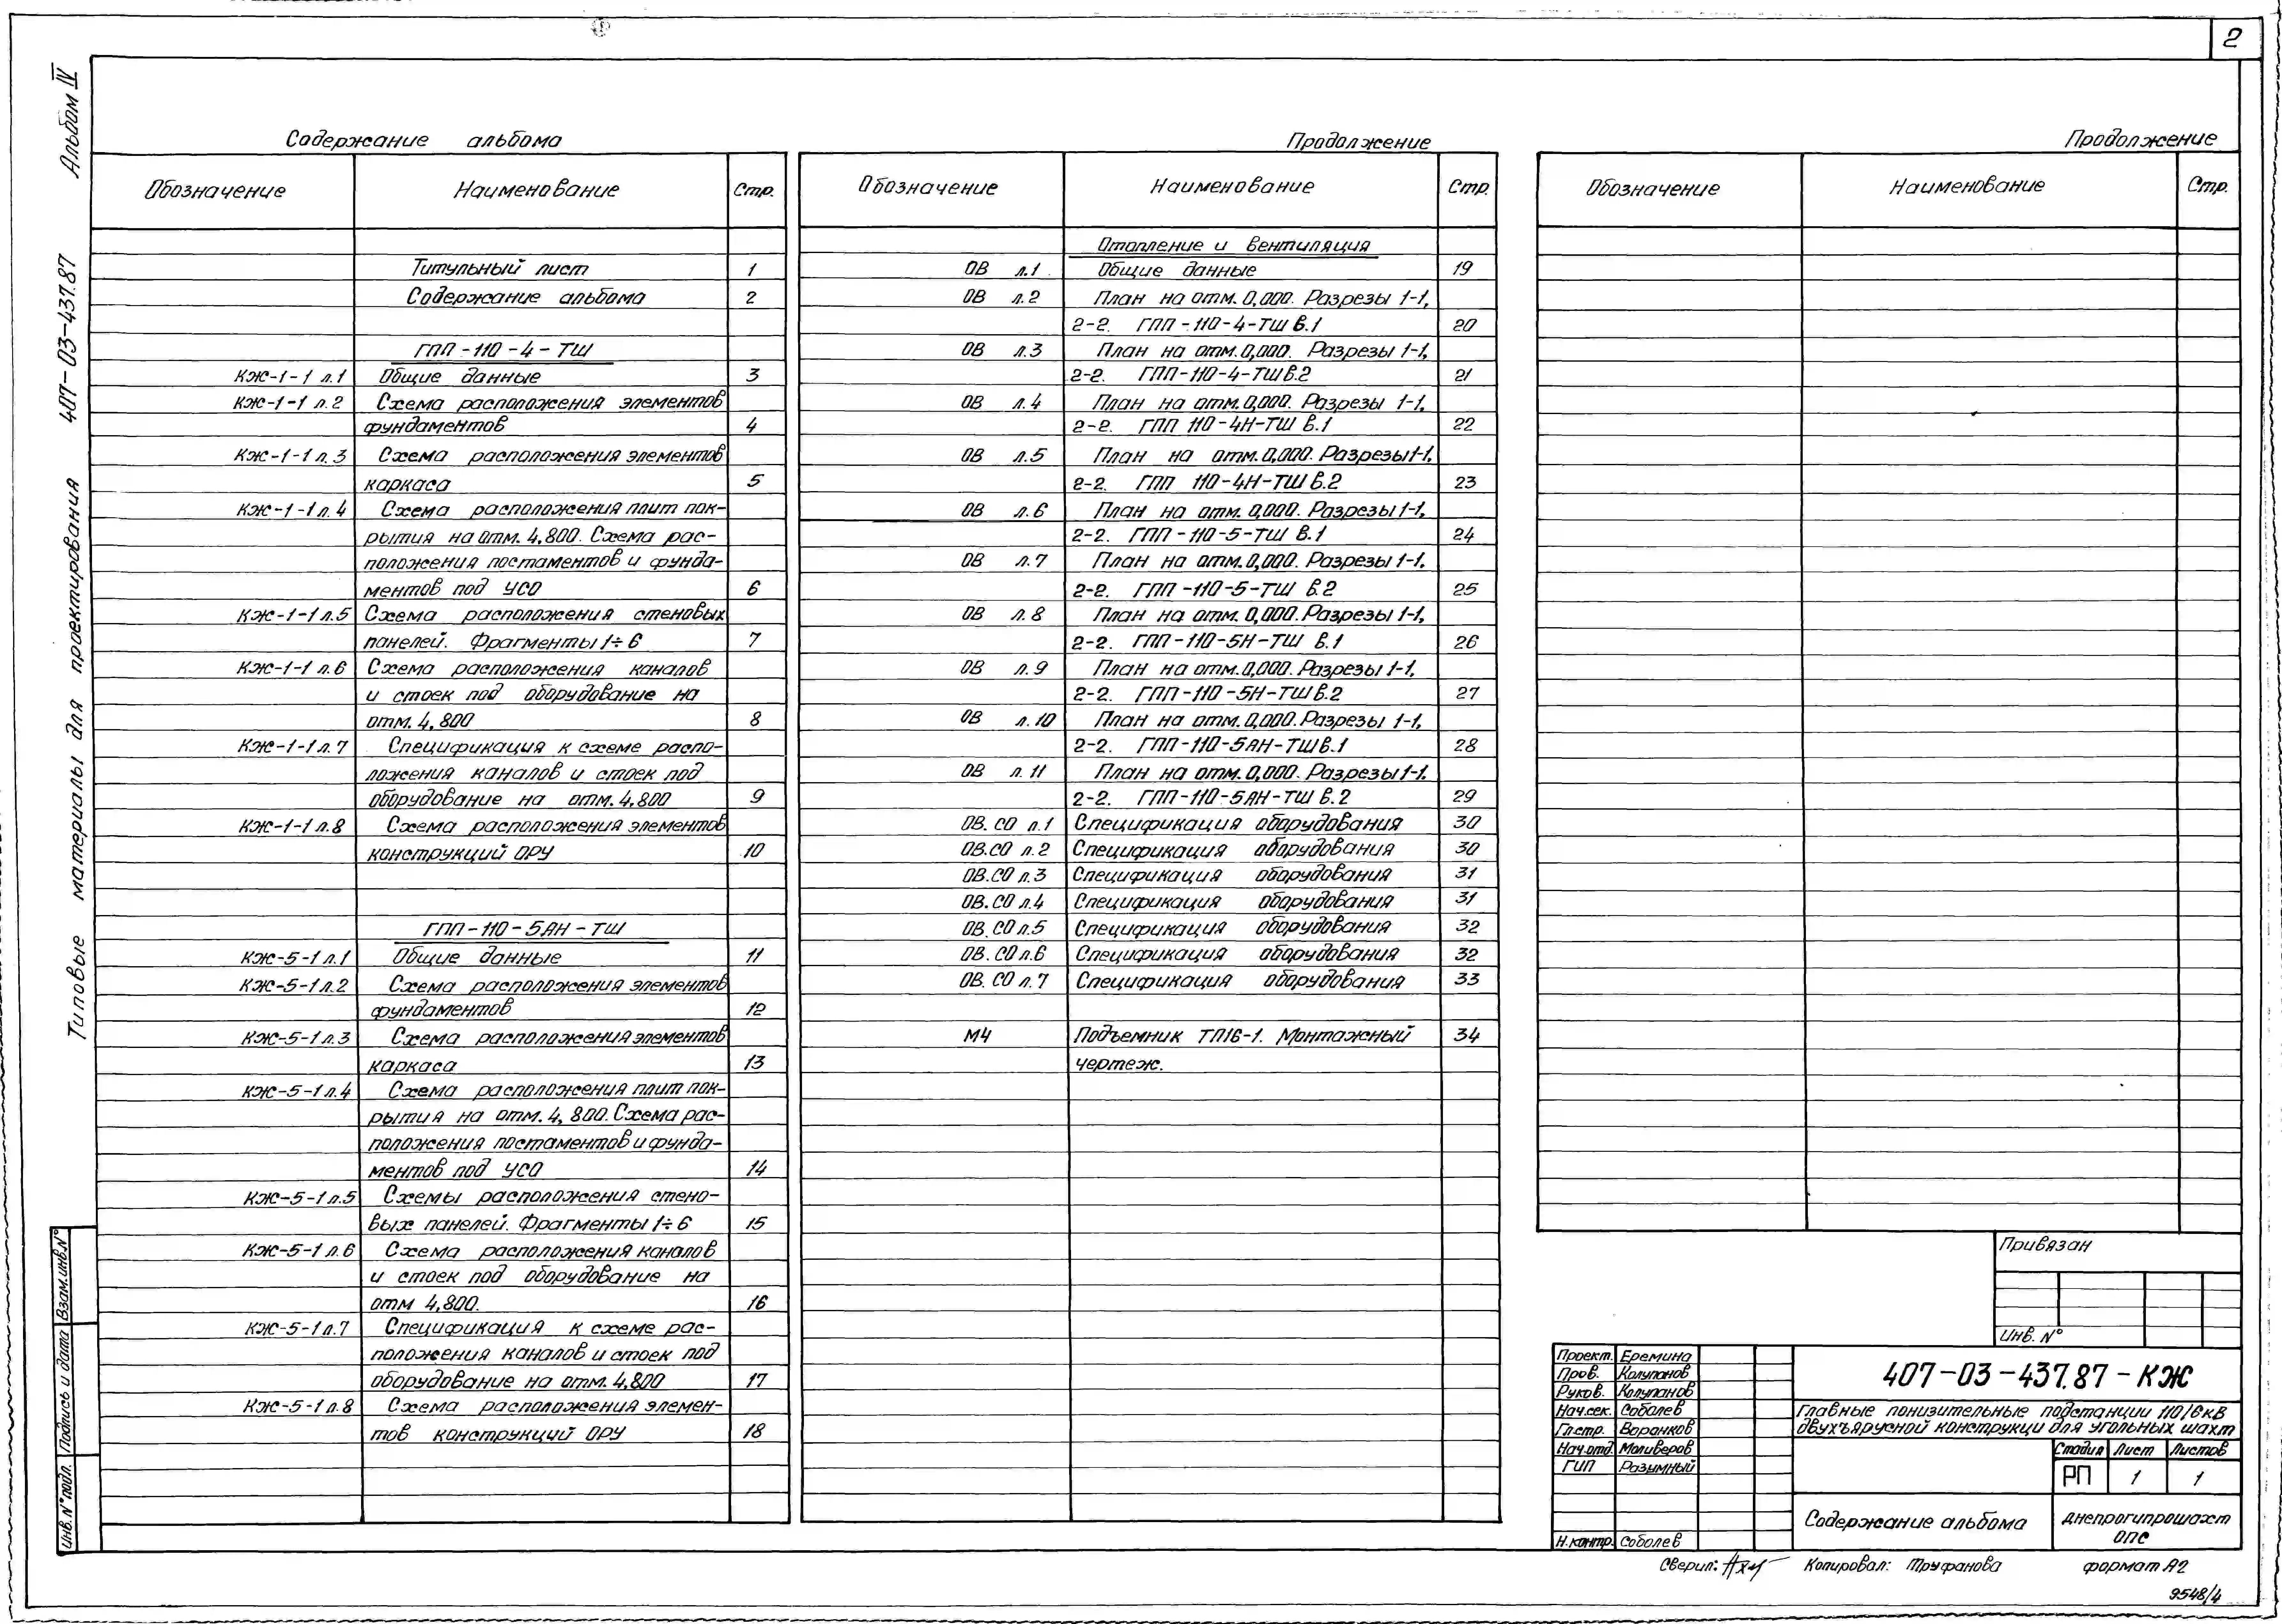 2
Альбом IV
407-03-437.87
Типовые материалы для проектирования
Содержание альбома
Обозначение Наименование Стр.
Титульный лист 1
Содержание альбома 2
ГПП-110-4-ТШ
КЖ-1-1 л.1 Общие данные 3
КЖ-1-1 л.2 Схема расположения элементов
фундаментов 4
КЖ-1-1 л.3 Схема расположения элементов
каркаса 5
КЖ-1-1 л.4 Схема расположения плит пок-
рытия на отм. 4,800. Схема рас-
положения постаментов и фунда-
ментов под УСО 6
КЖ-1-1 л.5 Схема расположения стеновых
панелей. Фрагменты 1÷6 7
КЖ-1-1 л.6 Схема расположения каналов
и стоек под оборудование на
отм. 4,800 8
КЖ-1-1 л.7 Спецификация к схеме распо-
ложения каналов и стоек под
оборудование на отм. 4,800 9
КЖ-1-1 л.8 Схема расположения элементов
конструкций ОРУ 10
ГПП-110-5АН-ТШ
КЖ-5-1 л.1 Общие данные 11
КЖ-5-1 л.2 Схема расположения элементов
фундаментов 12
КЖ-5-1 л.3 Схема расположения элементов
каркаса 13
КЖ-5-1 л.4 Схема расположения плит пок-
рытия на отм. 4,800. Схема рас-
положения постаментов и фунда-
ментов под УСО 14
КЖ-5-1 л.5 Схемы расположения стено-
вых панелей. Фрагменты 1÷6 15
КЖ-5-1 л.6 Схема расположения каналов
и стоек под оборудование на
отм 4,800. 16
КЖ-5-1 л.7 Спецификация к схеме рас-
положения каналов и стоек под
оборудование на отм. 4,800 17
КЖ-5-1 л.8 Схема расположения элемен-
тов конструкций ОРУ 18
Продолжение
Обозначение Наименование Стр.
Отопление и вентиляция
ОВ л.1 Общие данные 19
ОВ л.2 План на отм. 0,000. Разрезы 1-1,
2-2. ГПП-110-4-ТШ в.1 20
ОВ л.3 План на отм. 0,000. Разрезы 1-1,
2-2. ГПП-110-4-ТШ в.2 21
ОВ л.4 План на отм. 0,000. Разрезы 1-1,
2-2. ГПП 110-4Н-ТШ в.1 22
ОВ л.5 План на отм. 0,000. Разрезы 1-1,
2-2. ГПП 110-4Н-ТШ в.2 23
ОВ л.6 План на отм. 0,000. Разрезы 1-1,
2-2. ГПП-110-5-ТШ в.1 24
ОВ л.7 План на отм. 0,000. Разрезы 1-1,
2-2. ГПП-110-5-ТШ в.2 25
ОВ л.8 План на отм. 0,000. Разрезы 1-1,
2-2. ГПП-110-5Н-ТШ в.1 26
ОВ л.9 План на отм. 0,000. Разрезы 1-1,
2-2. ГПП-110-5Н-ТШ в.2 27
ОВ л.10 План на отм. 0,000. Разрезы 1-1,
2-2. ГПП-110-5АН-ТШ в.1 28
ОВ л.11 План на отм. 0,000. Разрезы 1-1.
2-2. ГПП-110-5АН-ТШ в.2 29
ОВ.СО л.1 Спецификация оборудования 30
ОВ.СО л.2 Спецификация оборудования 30
ОВ.СО л.3 Спецификация оборудования 31
ОВ.СО л.4 Спецификация оборудования 31
ОВ.СО л.5 Спецификация оборудования 32
ОВ.СО л.6 Спецификация оборудования 32
ОВ.СО л.7 Спецификация оборудования 33
М4 Подъемник ТП16-1. Монтажный 34
чертеж.
Продолжение
Обозначение Наименование Стр.
Привязан
Инв. №
Взам.инв.№
Подпись и дата
Инв.№подл.
Проект. Еремина
Пров. Колупанов
Руков. Колупанов
Нач.сек. Соболев
Гл.стр. Воронков
Нач.отд. Моливеров
ГИП Разумный
Н.контр. Соболев
407-03-437.87-КЖ
Главные понизительные подстанции 110/6кВ
двухъярусной конструкци для угольных шахт
Стадия Лист Листов
РП 1 1
Содержание альбома
Днепрогипрошахт
ОПС
Сверил: Копировал: Труфанова формат А2
9548/4